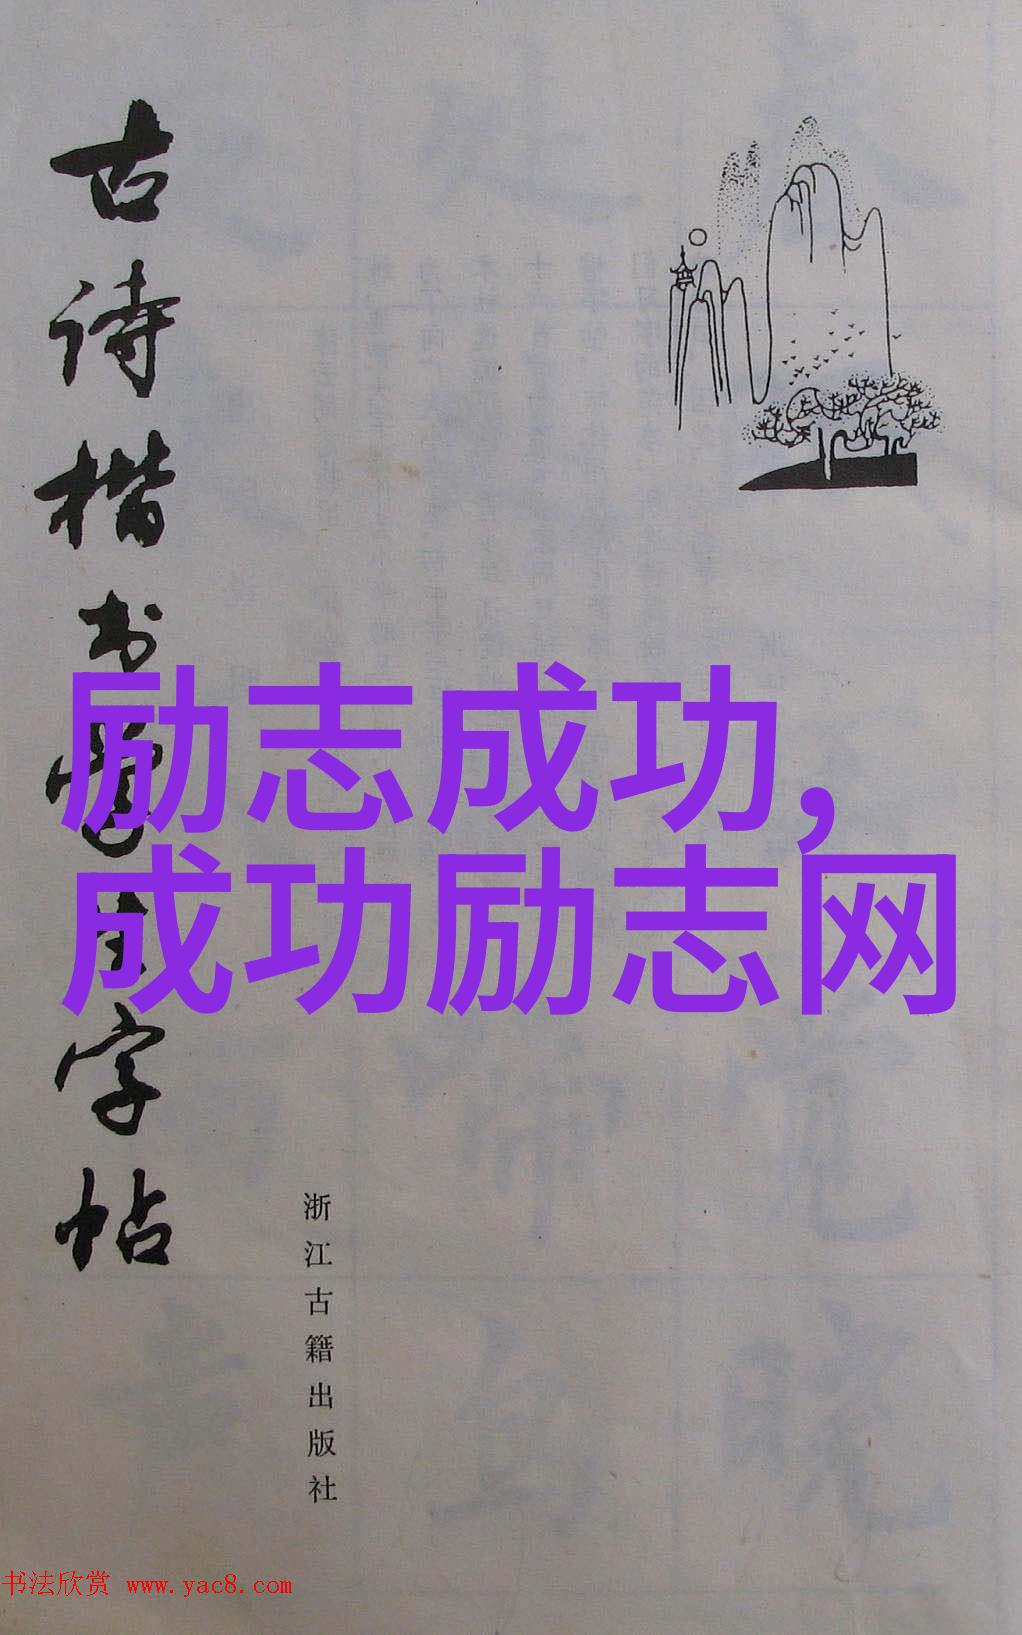 古诗楷书学生字帖
励志成功,
成功励志网
浙江古籍出版社
书法欣赏 www.yac8.com